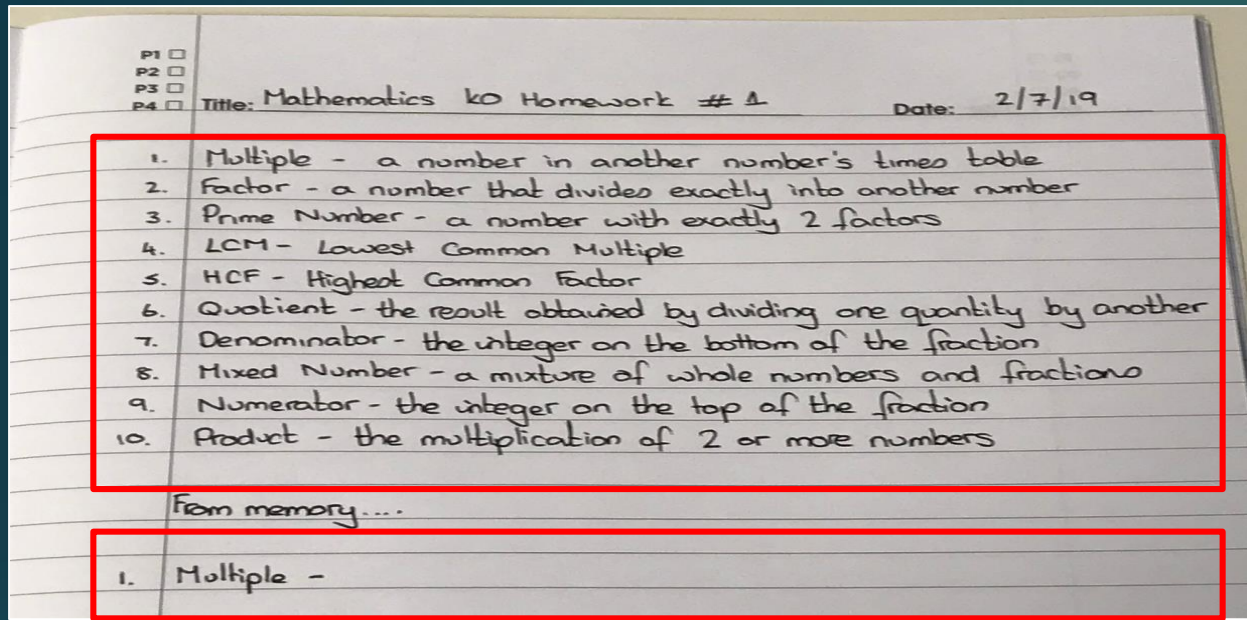 P1 □
P2 □
P3 □
P4 □ Title: Mathematics KO Homework # 1 Date: 2/7/19
1. Multiple - a number in another number's times table
2. Factor - a number that divides exactly into another number
3. Prime Number - a number with exactly 2 factors
4. LCM - Lowest Common Multiple
5. HCF - Highest Common Factor
6. Quotient - the result obtained by dividing one quantity by another
7. Denominator - the integer on the bottom of the fraction
8. Mixed Number - a mixture of whole numbers and fractions
9. Numerator - the integer on the top of the fraction
10. Product - the multiplication of 2 or more numbers
From memory....
1. Multiple -